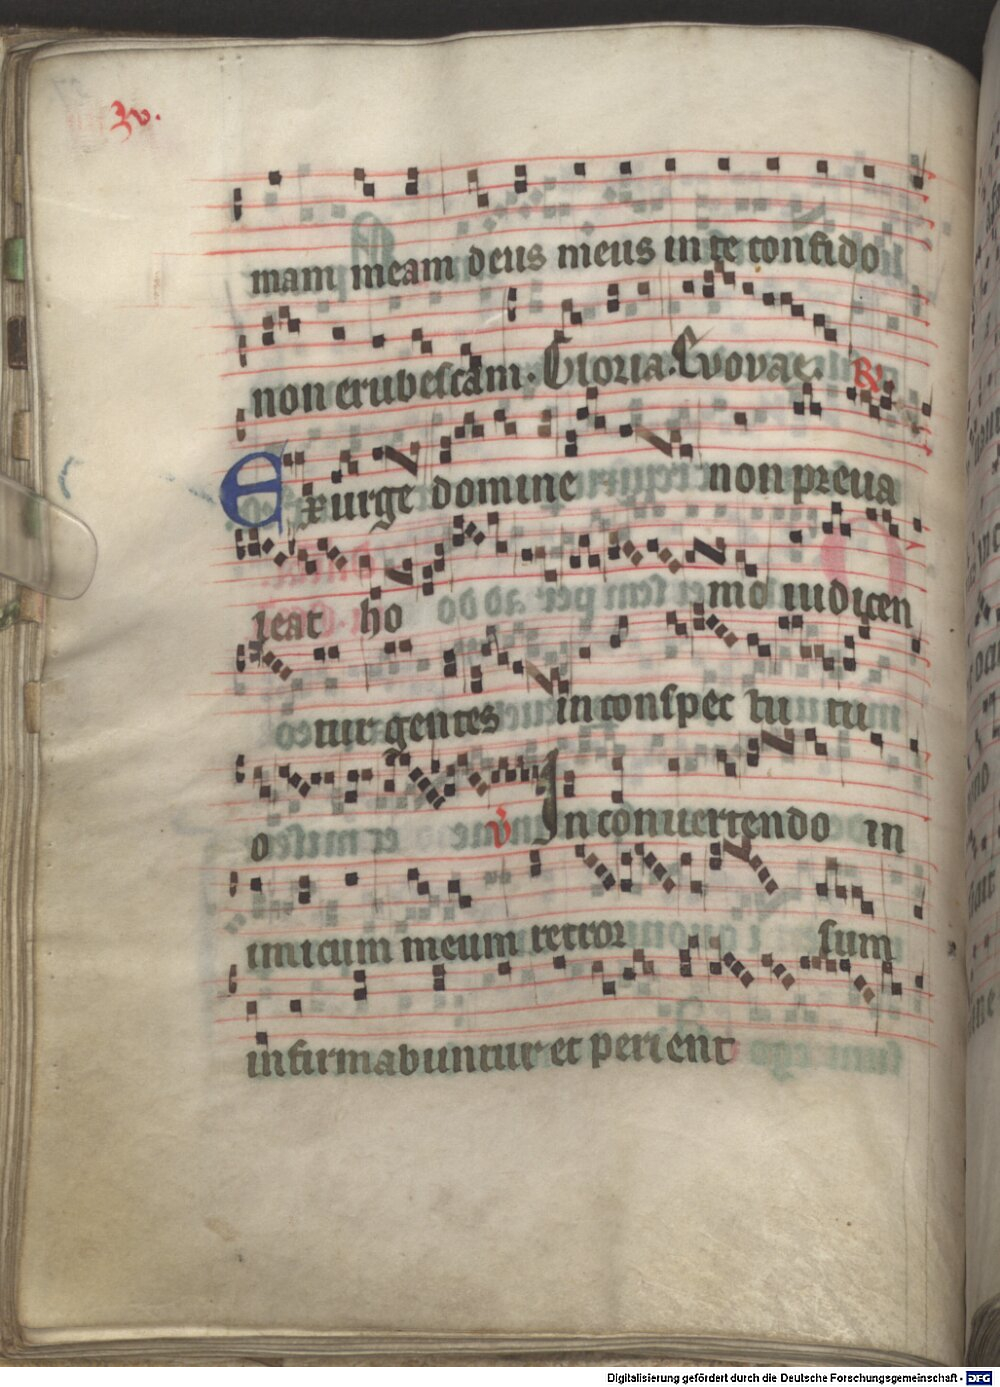 zv.
mam meam deus meus in te confido
non erubescam. Gloria. Evovae. R
Exurge domine non preva
leat ho mo iudicen
tur gentes in conspec tu tu
o v In convertendo in
imicum meum retror sum
infirmabuntur et perient
Digitalisierung gefördert durch die Deutsche Forschungsgemeinschaft - DFG